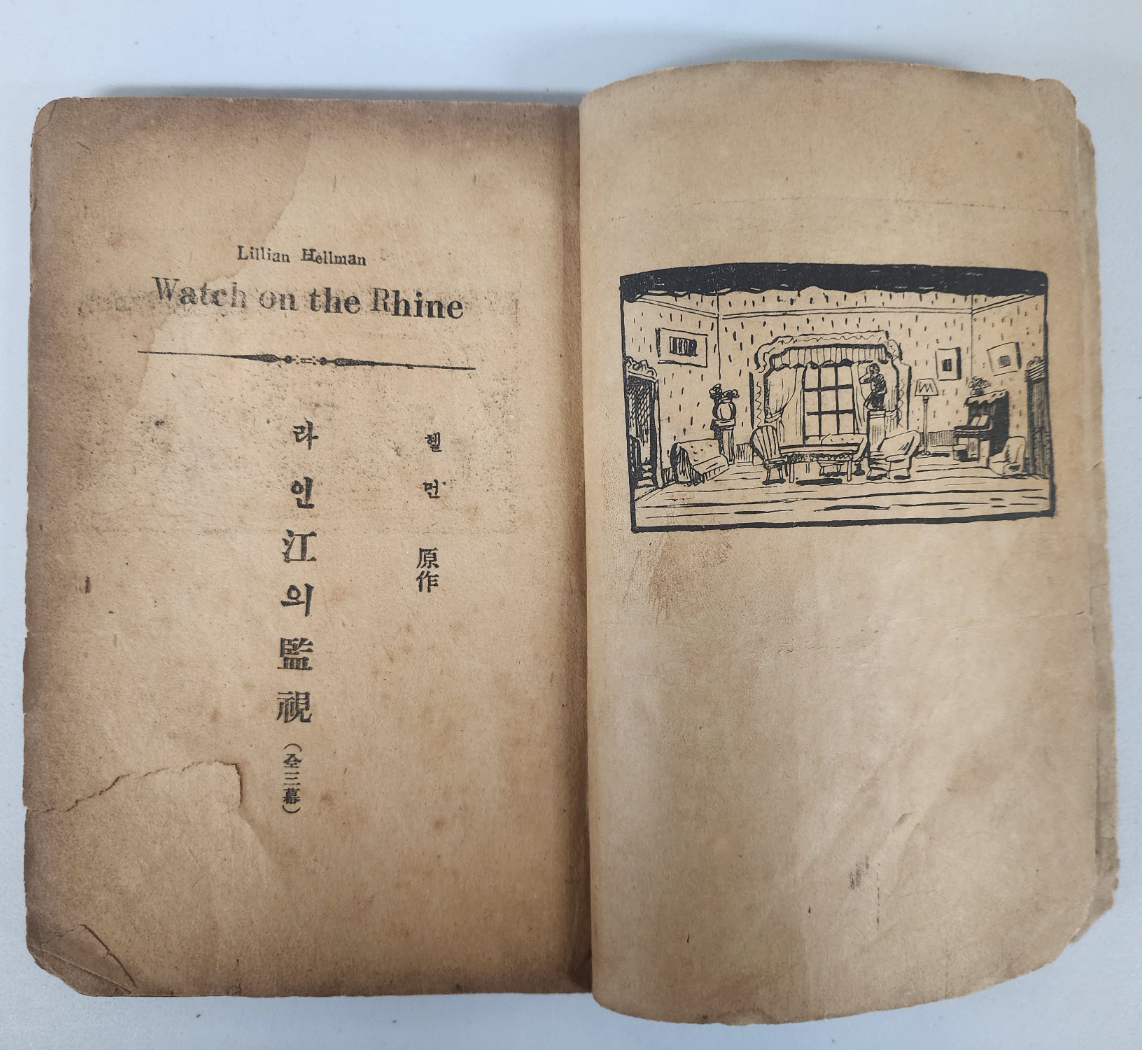 Lillian Hellman
Watch on the Rhine
헬먼 原作
라인江의監視 (全三幕)